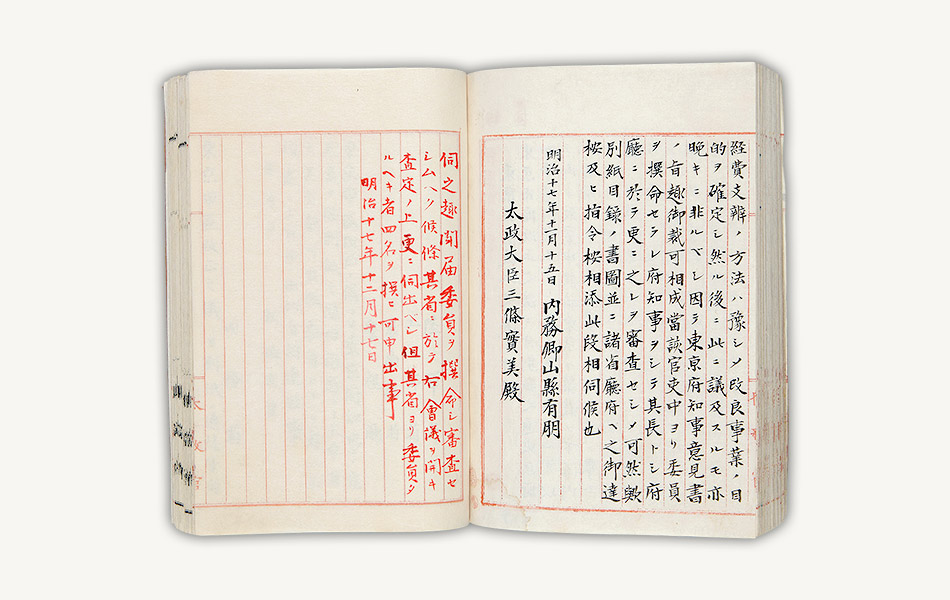 経費支辨ノ方法ハ豫シメ改良事業ノ目
的ヲ確定シ然ル後ニ此ニ議及スルモ亦
晩キニ非ルベシ因テ東京府知事意見書
ノ旨趣御裁可相成當該官吏中ヨリ委員
ヲ撰命セラレ府知事ヲシテ其長トシ府
廳ニ於テ更ニ之レヲ審査セシメ可然歟
別紙目録ノ書圖並ニ諸省廳府ヘ之御達
桉及ヒ指令桉相添此段相伺候也
明治十七年十一月十五日 内務卿山縣有朋
太政大臣三條實美殿
伺之趣聞届委員ヲ撰命シ審査セ
シムヘク候條其省ニ於テ右會議ヲ開キ
査定ノ上更ニ伺出ヘシ但其省ヨリ委員タ
ルヘキ者四名ヲ撰ヒ可申出事
明治十七年十二月十七日
太政官